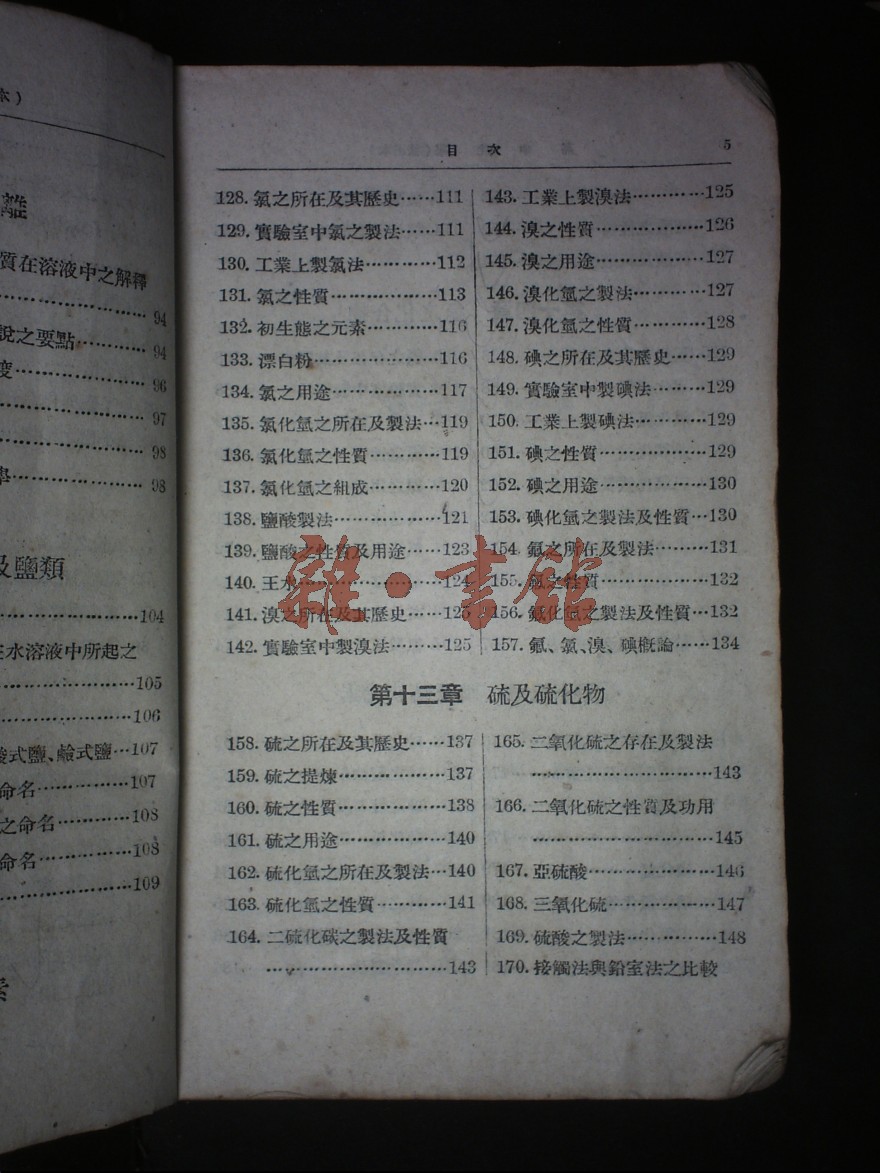 本）
離
質在溶液中之解釋
……………………94
說之要點…………94
度……………………96
……………………97
……………………98
學……………………98
及鹽類
……………………104
在水溶液中所起之
……………………105
……………………106
酸式鹽、鹼式鹽…107
命名………………107
之命名……………108
命名………………108
……………………109
素
目 次 5
128. 氯之所在及其歷史……111
129. 實驗室中氯之製法……111
130. 工業上製氯法…………112
131. 氯之性質………………113
132. 初生態之元素…………116
133. 漂白粉…………………116
134. 氯之用途………………117
135. 氯化氫之所在及製法…119
136. 氯化氫之性質…………119
137. 氯化氫之組成…………120
138. 鹽酸製法………………121
139. 鹽酸之性質及用途……123
140. 王水……………………124
141. 溴之所在及其歷史……125
142. 實驗室中製溴法………125
143. 工業上製溴法…………125
144. 溴之性質………………126
145. 溴之用途………………127
146. 溴化氫之製法…………127
147. 溴化氫之性質…………128
148. 碘之所在及其歷史……129
149. 實驗室中製碘法………129
150. 工業上製碘法…………129
151. 碘之性質………………129
152. 碘之用途………………130
153. 碘化氫之製法及性質…130
154. 氟之所在及製法………131
155. 氟之性質………………132
156. 氟化氫之製法及性質…132
157. 氟、氯、溴、碘概論……134
第十三章 硫及硫化物
158. 硫之所在及其歷史……137
159. 硫之提煉………………137
160. 硫之性質………………138
161. 硫之用途………………140
162. 硫化氫之所在及製法…140
163. 硫化氫之性質…………141
164. 二硫化碳之製法及性質
…………………………143
165. 二氧化硫之存在及製法
…………………………143
166. 二氧化硫之性質及功用
…………………………145
167. 亞硫酸…………………146
168. 三氧化硫………………147
169. 硫酸之製法……………148
170. 接觸法與鉛室法之比較
雜·書館